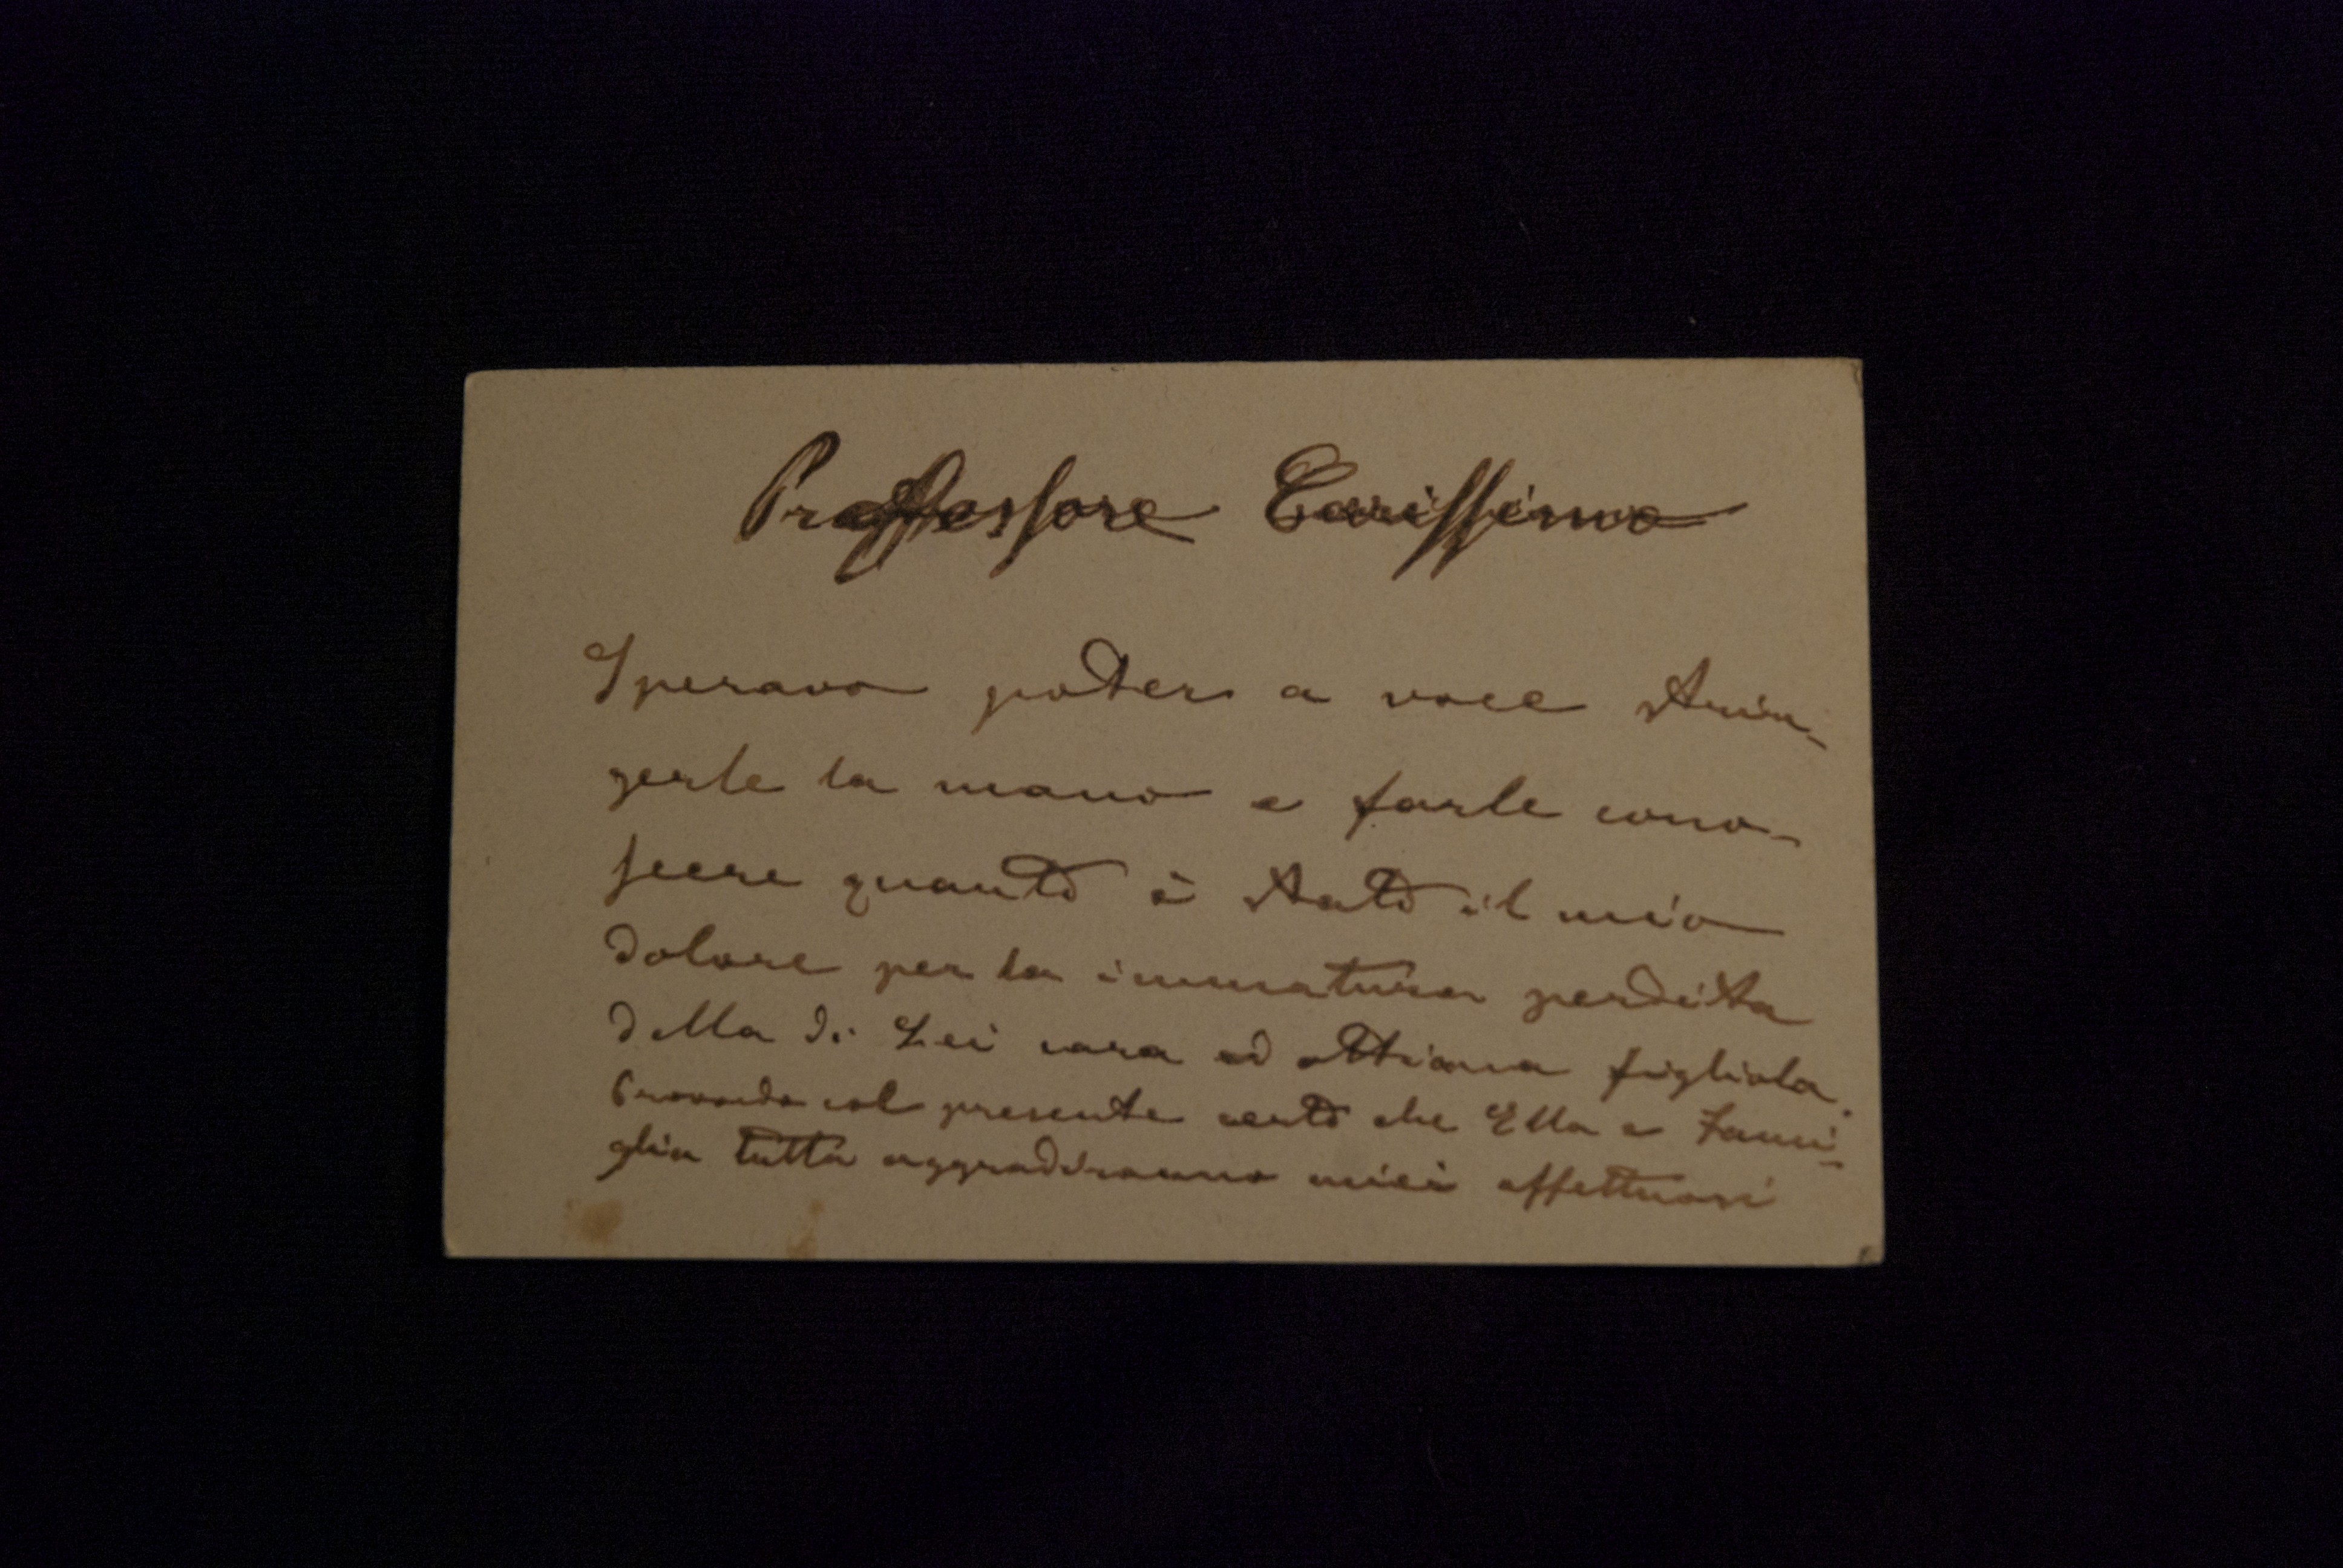 Proffessore Carissimo
Speravo poter a voce strin-
gerle la mano e farle cono-
scere quanto è stato il mio
dolore per la immatura perdita
della di Lei cara ed ottima figliola.
col presente certo che Ella e Fami-
glia tutta aggradiranno miei affettuosi